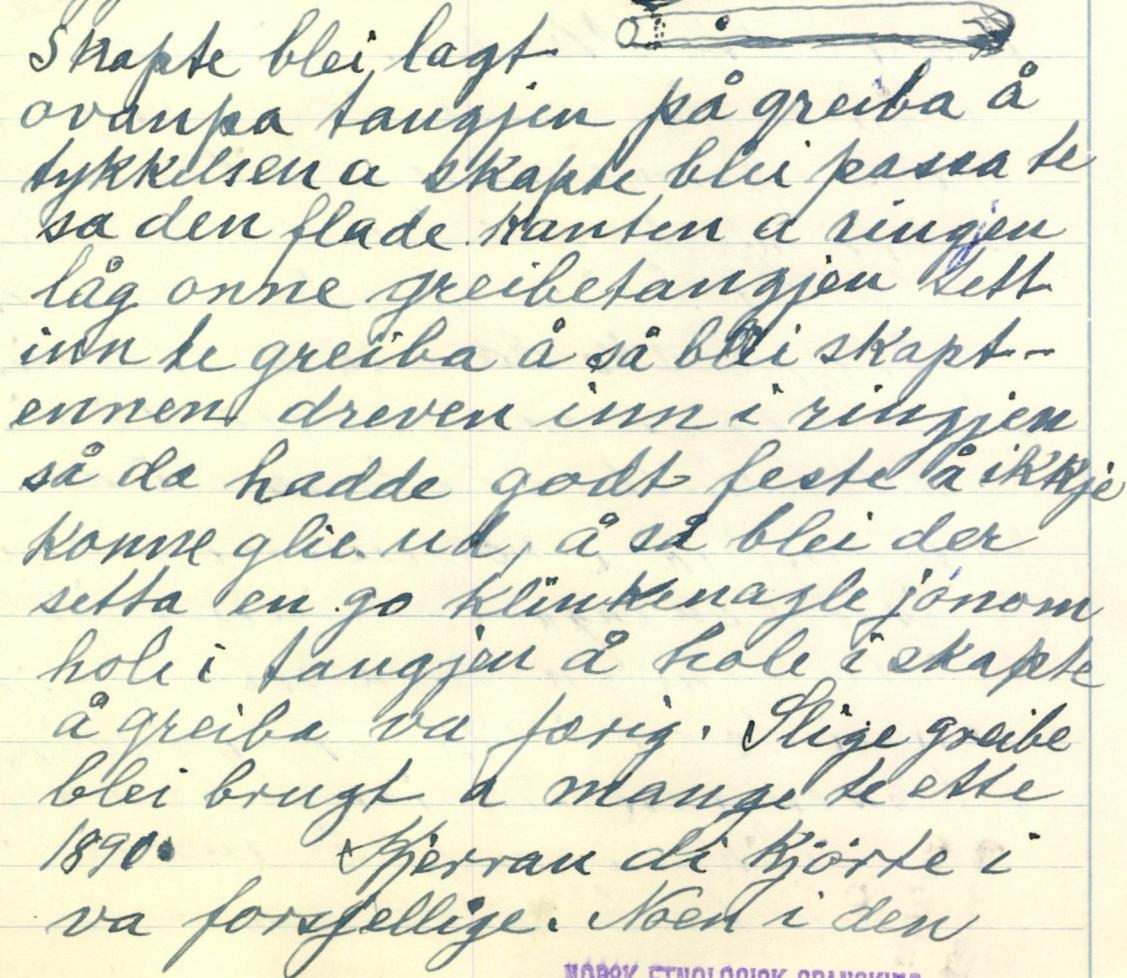 Skapte blei lagt
ovanpa tangjen på greiba å
tykkelsen a skapte blei passa te
sa den flade kanten a ringen
låg onne greibetangjen tett
inn te greiba å så blei skapt-
ennen dreven inn i ringjen
så da hadde godt feste å ikkje
konne glie ud, å så blei der
setta en go klinkenagle jónom
hole i tangjen å hole i skapte
å greiba va færig. Slige greibe
blei brugt a mange te ette
1890. Kjerran di kjørte i
va forsjellige. Noen i den
NORSK ETNOLOGISK GRANSKING